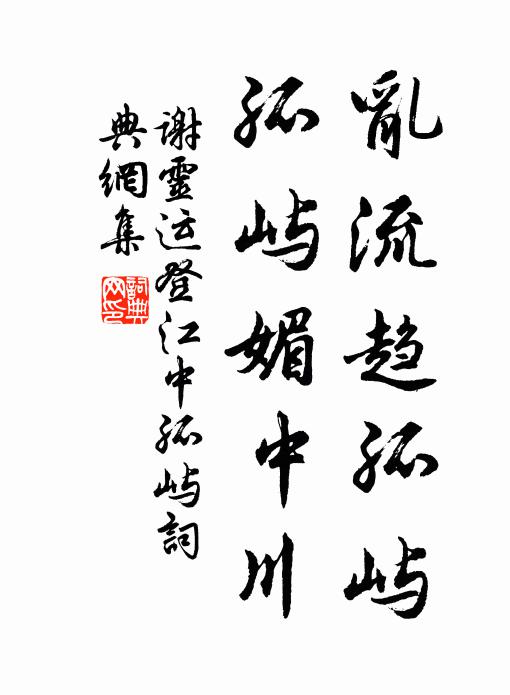 亂流趋孤屿
孤屿媚中川
谢靈运登江中孤屿詞
典網集
詞典
网印